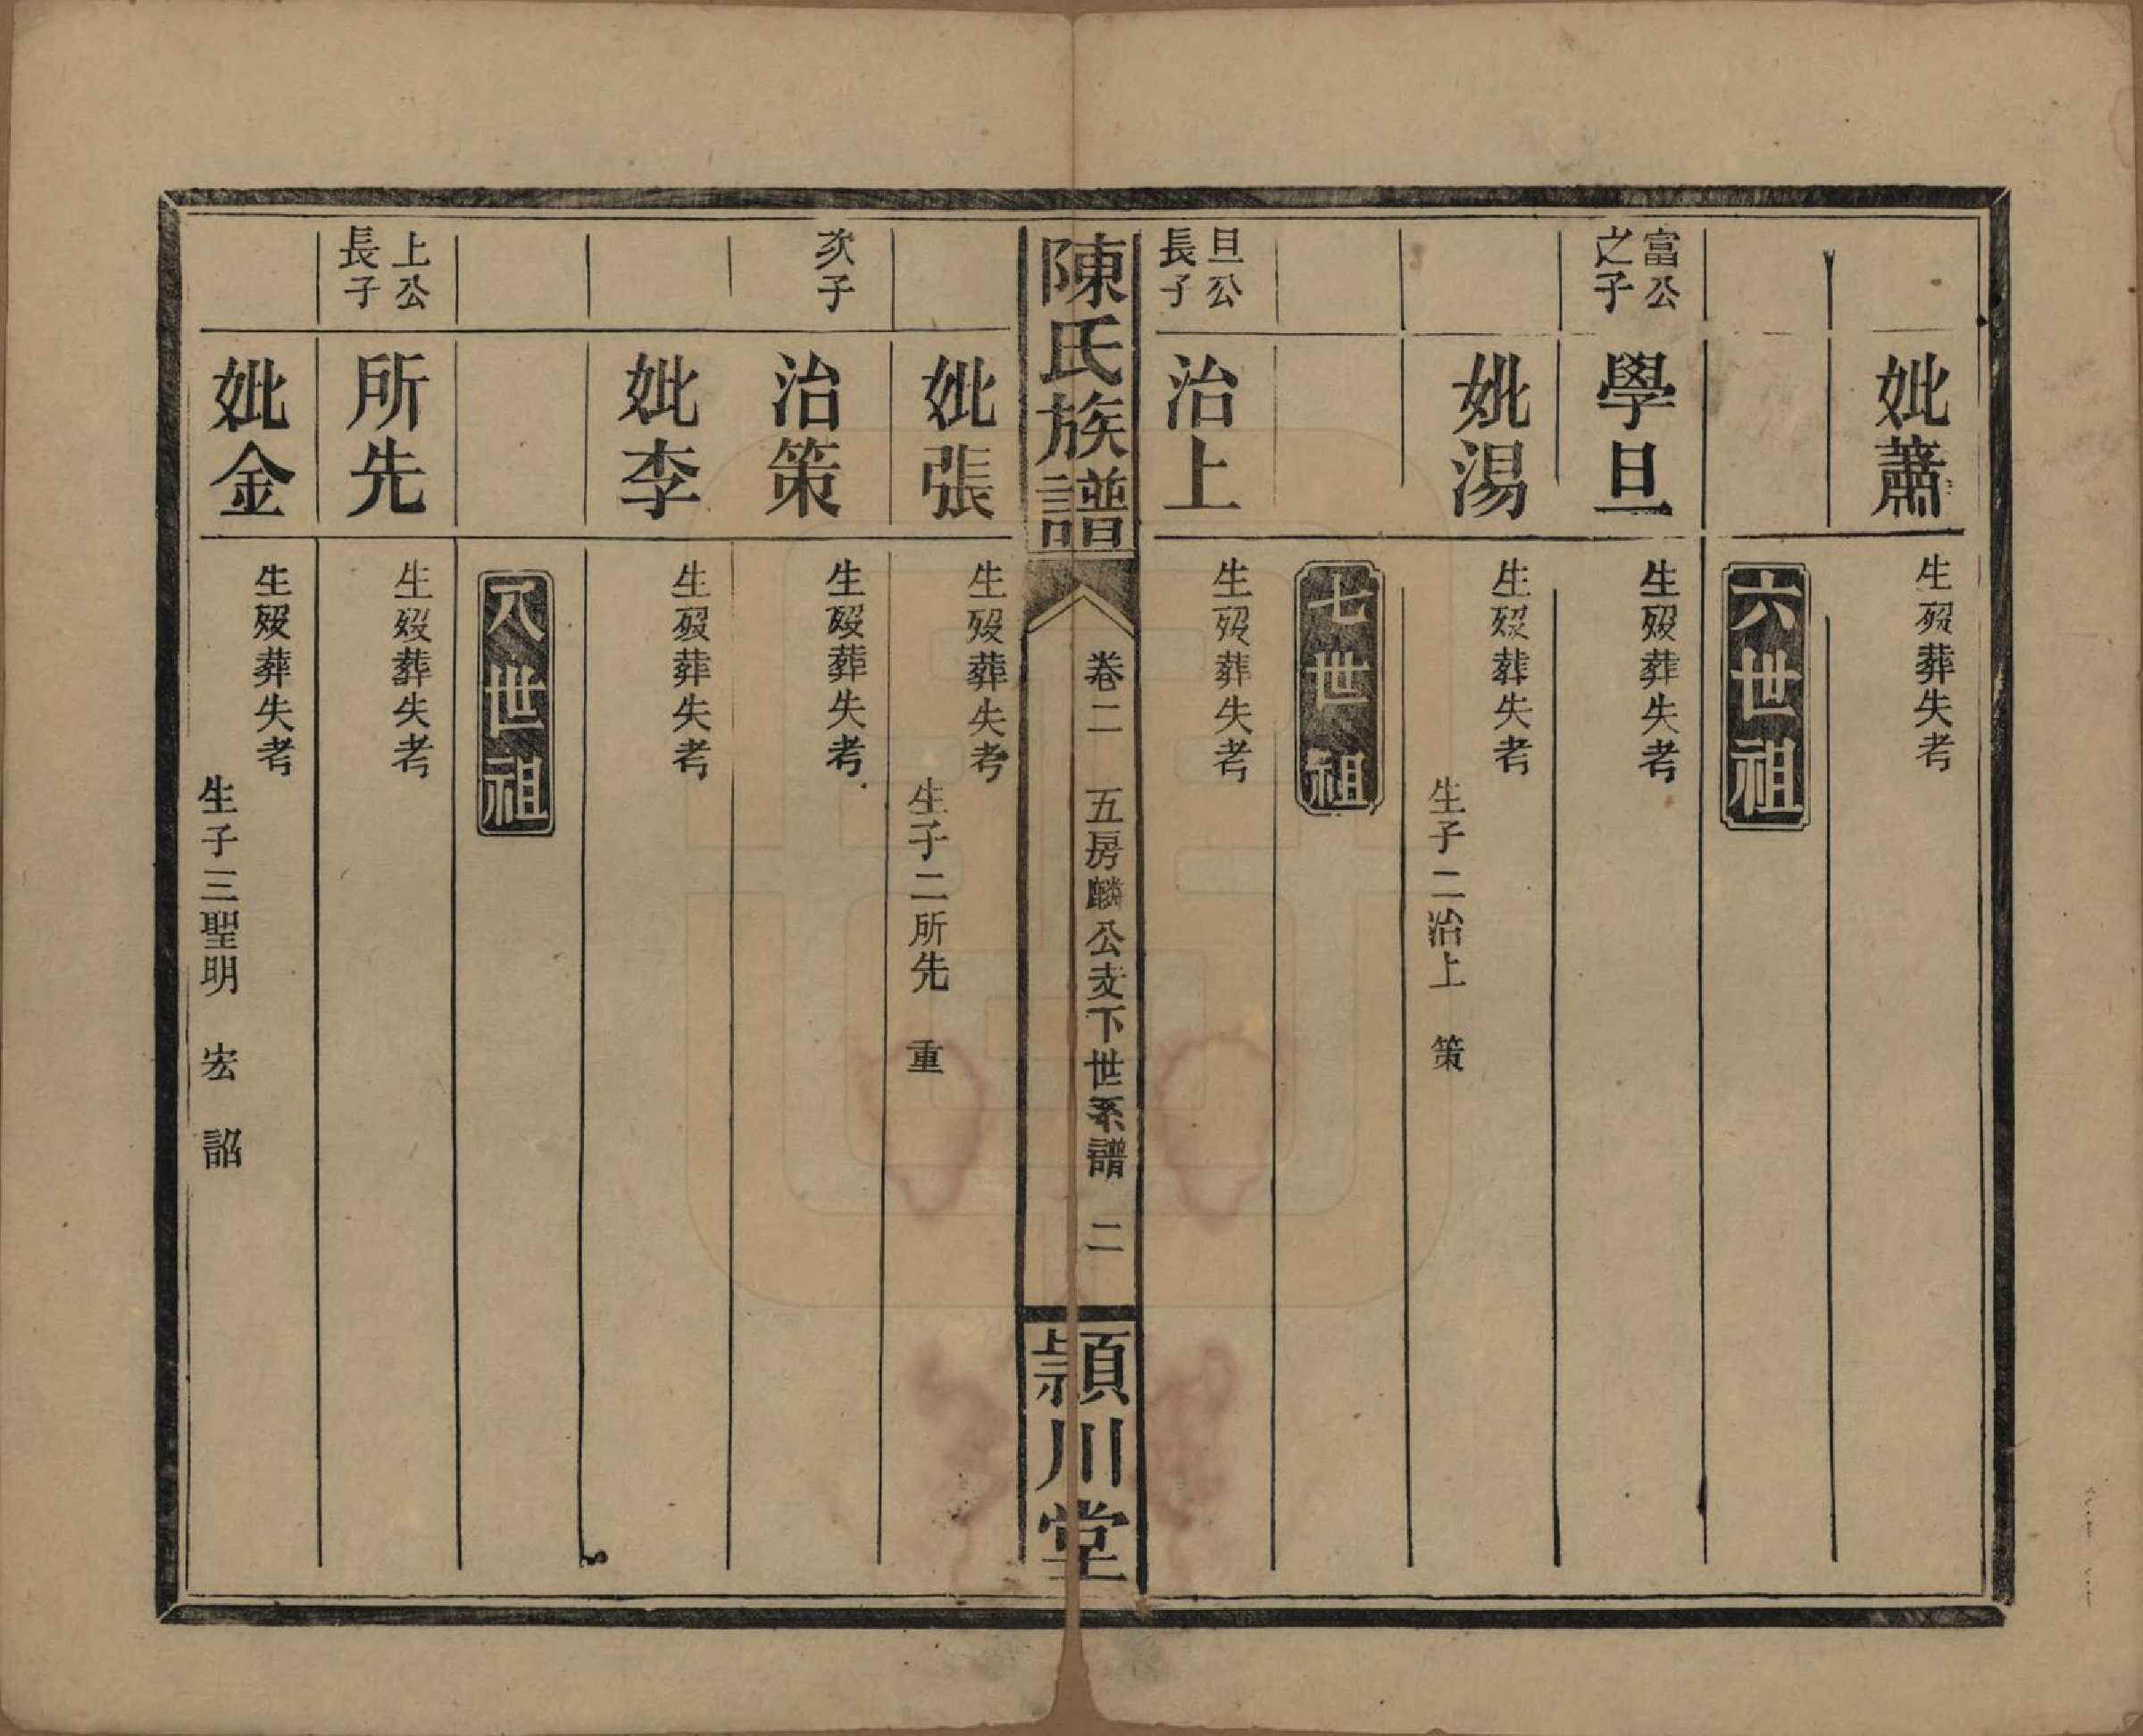 妣蕭
生歿葬失考
六世祖
富公
之子
學旦
生歿葬失考
妣湯
生歿葬失考
生子二治上 策
七世祖
旦公
長子
治上
生歿葬失考
陳氏族譜
卷二 五房麟公支下世系譜 二
潁川堂
妣張
生歿葬失考
生子二所先 重
次子
治策
生歿葬失考
妣李
生歿葬失考
八世祖
上公
長子
所先
生歿葬失考
妣金
生歿葬失考
生子三聖明 宏 詔